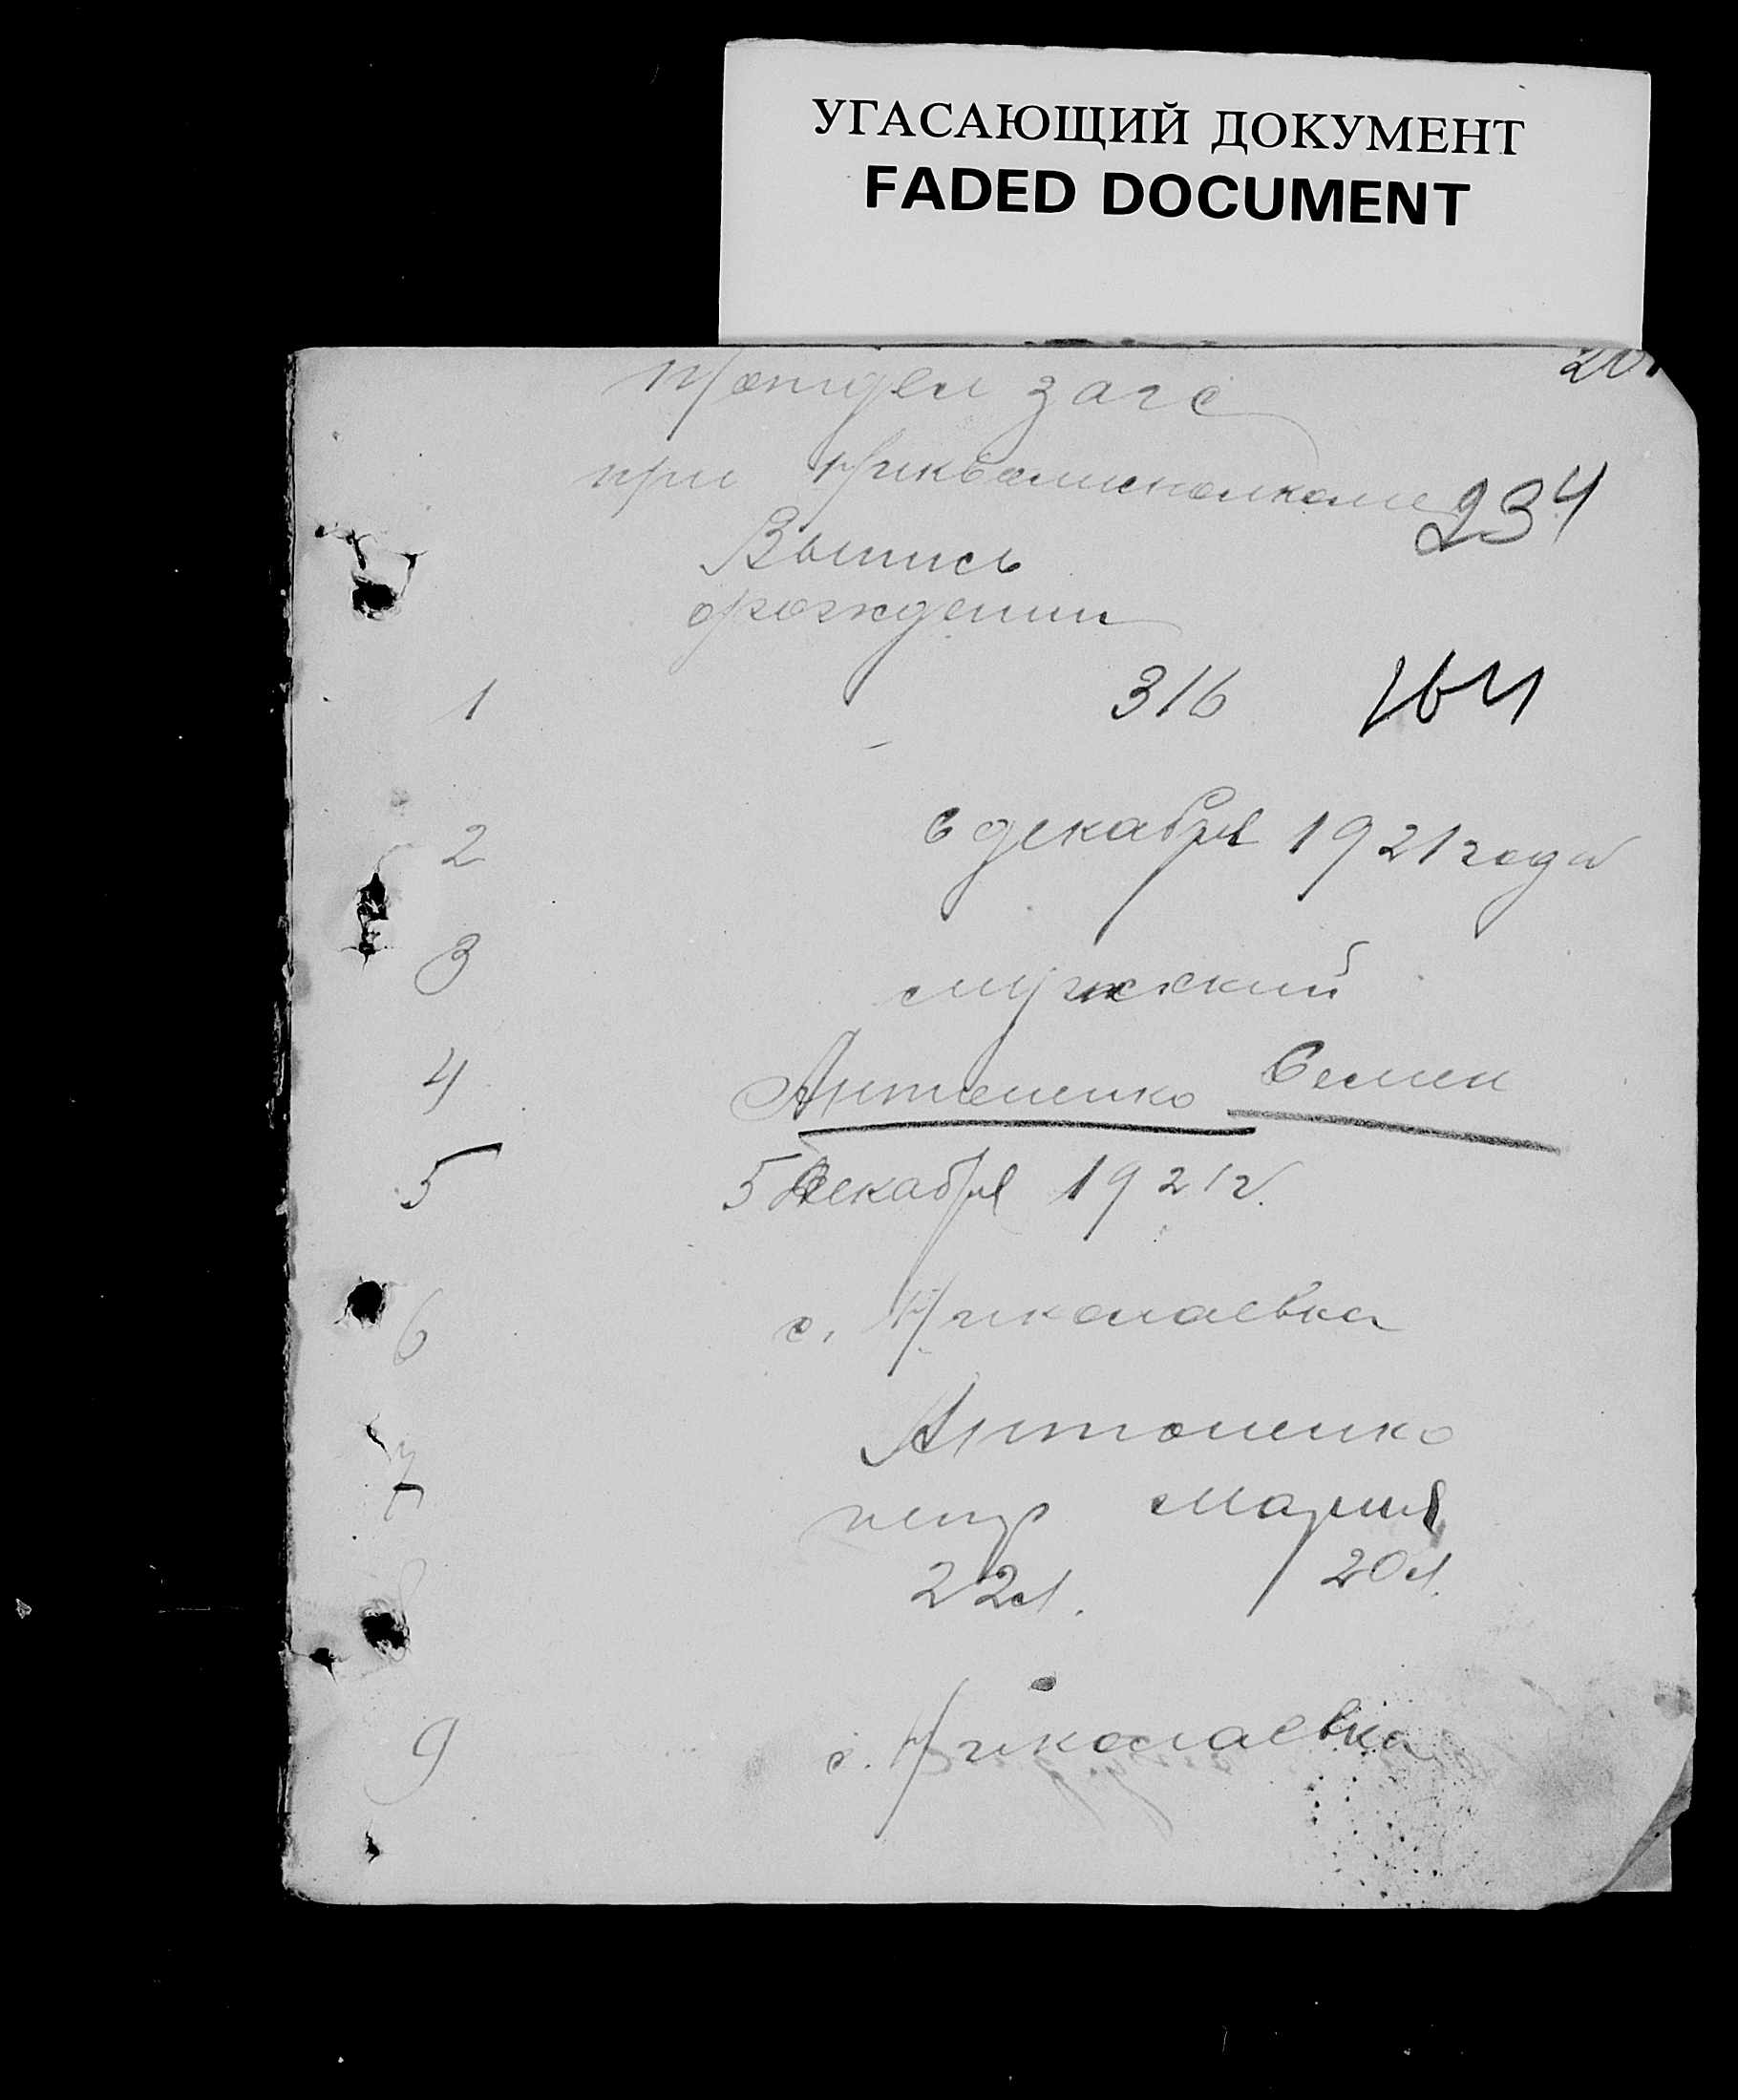 УГАСАЮЩИЙ ДОКУМЕНТ
FADED DOCUMENT
загс
при
234
Выпись
орождении
1 316 164
2 6 декабря 1921 года
3 мужский
4 Антоненко Семен
5 5 декабря 1921 г.
6 с. Николаевка
Антоненко
7 петр мария
22 л. 20 л.
9 с. Николаевка